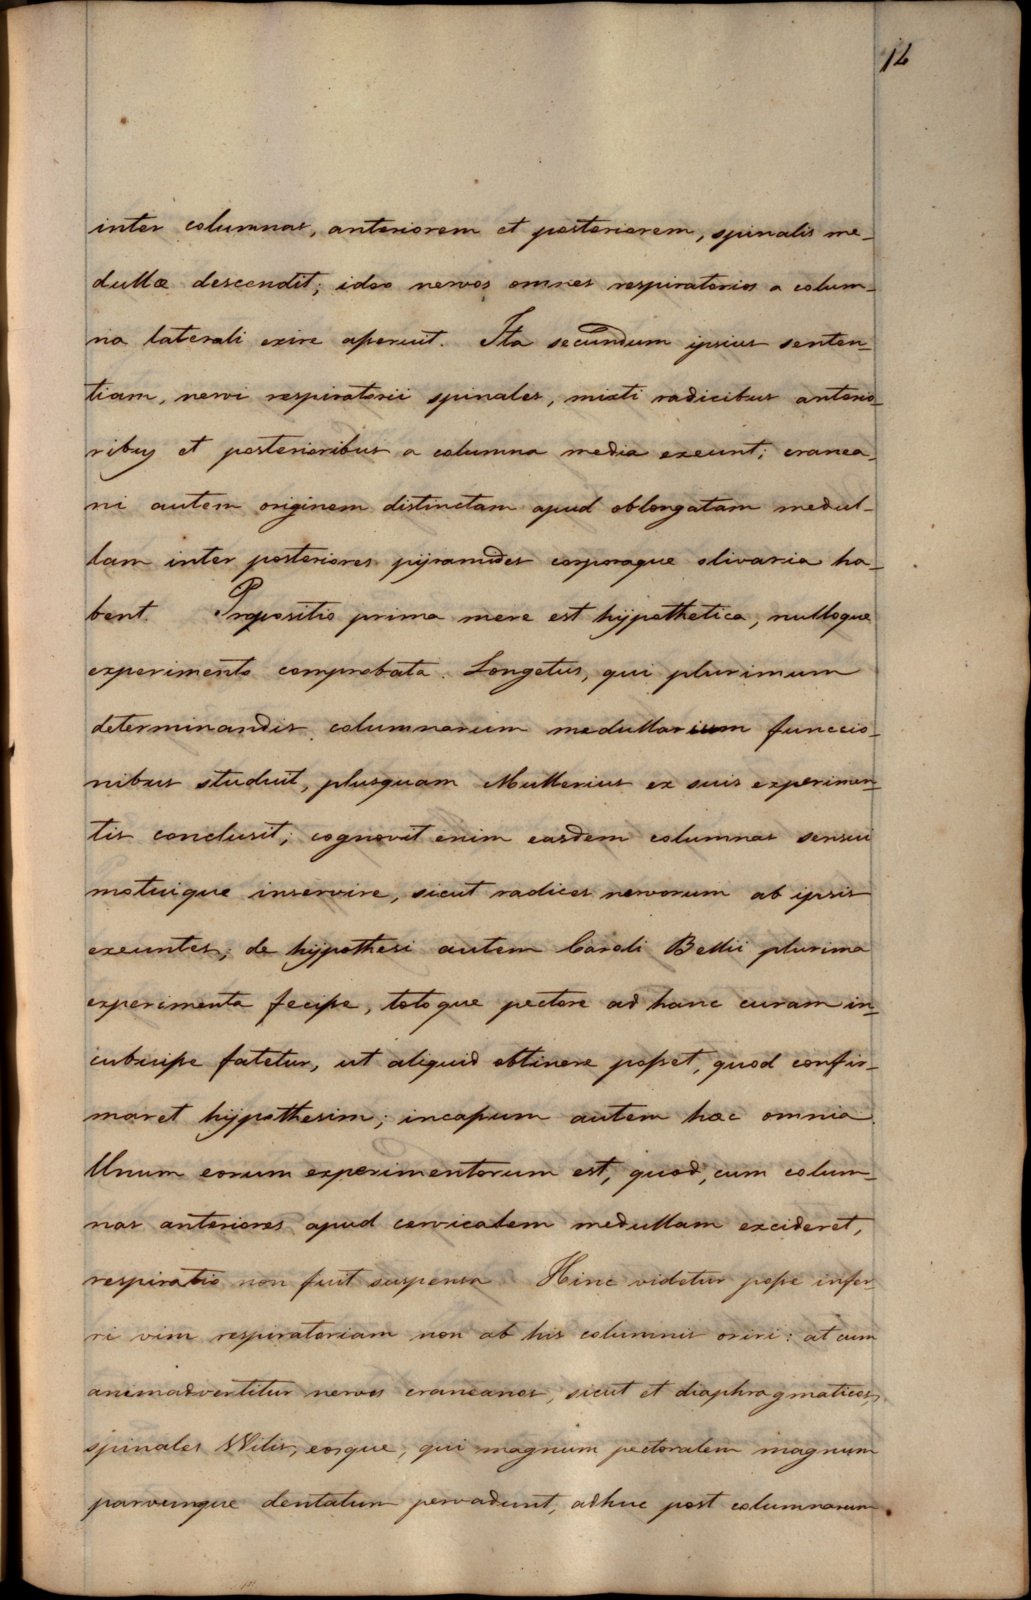 12
inter columnas, anteriorem et posteriorem, spinalis me-
dullæ descendit; ideo nervos omnes respiratorios a colum-
na laterali exire asseruit. Ita secundum ipsius senten-
tiam, nervi respiratorii spinales, mixti radicibus anterio-
ribus et posterioribus a columna media exeunt; cranea-
ni autem originem distinctam apud oblongatam medul-
lam inter posteriores pÿramides corporaque olivaria ha-
bent. Propositio prima mere est hÿpothetica, nulloque
experimento comprobata. Longetus, qui plurimum
determinandis columnarum medullarium funccio-
nibus studuit, plusquam Mullerius ex suis experimen-
tis conclusit; cognovit enim easdem columnas sensui
motuique inservire, sicut radices nervorum ab ipsis
exeuntes; de hÿpothesi autem Caroli Bellii plurima
experimenta fecisse, totoque pectore ad hanc curam in-
cubuisse fatetur, ut aliquid obtinere posset, quod confir-
maret hÿpothesim; incassum autem hæc omnia.
Unum eorum experimentorum est, quod, cum colum-
nas anteriores apud cervicalem medullam excideret,
respiratio non fuit suspensa Hinc videtur posse infer-
ri vim respiratoriam non ab his columnis oriri: at cum
animadvertitur nervos craneanos, sicut et diaphragmaticos,
spinales Wilis, eosque, qui magnum pectoralem magnum
parvumque dentatum pervadunt, adhuc post columnarum